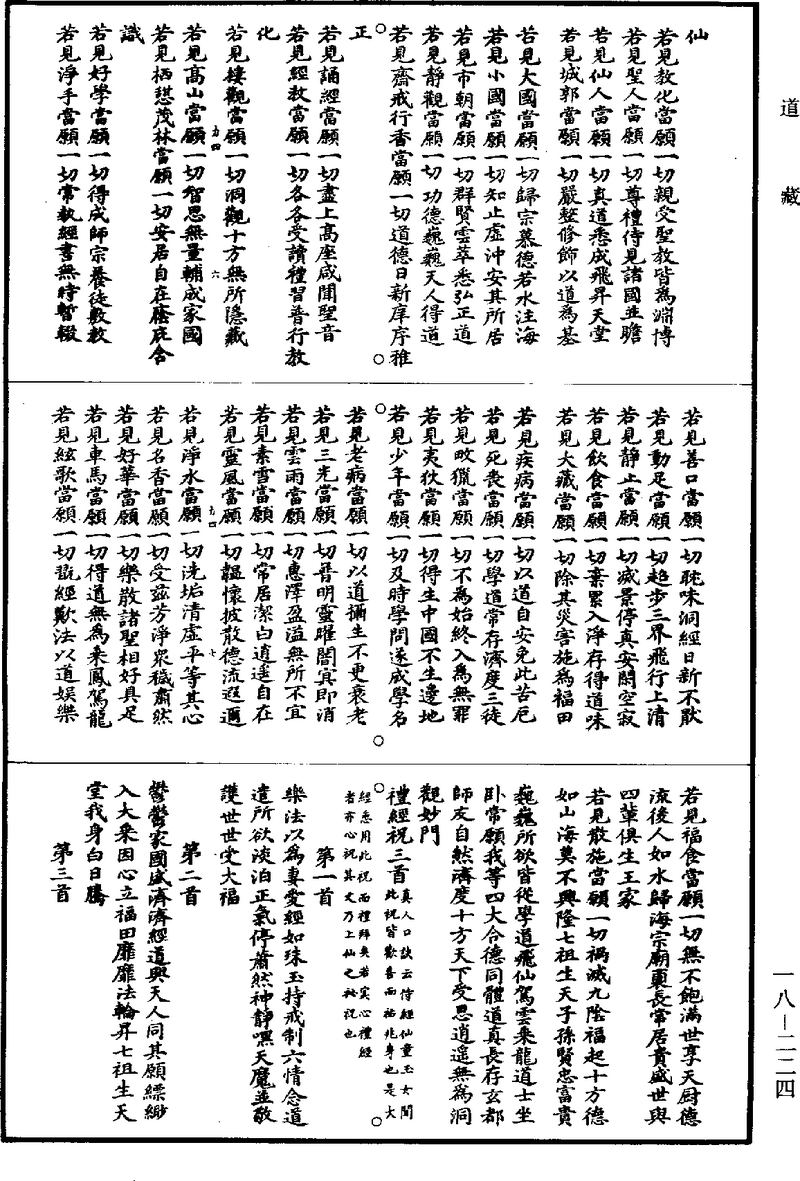 道藏
仙
若見教化當願一切親受聖教皆為淵博
若見聖人當願一切尊禮侍見諸國並瞻
若見仙人當願一切真道悉成飛昇天堂
若見城郭當願一切嚴整修飾以道為基
若見大國當願一切歸宗慕德若水注海
若見小國當願一切知止虛沖安其所居
若見市朝當願一切群賢雲萃悉弘正道
若見靜觀當願一切功德巍巍天人得道
若見齋戒行香當願一切道德日新庠序雅
正
若見誦經當願一切盡上高座咸聞聖音
若見經教當願一切各各受讀禮習普行教
化
若見樓觀當願一切洞觀十方無所隱藏
若見高山當願一切智思無量輔成家國
若見栖憇茂林當願一切安居自在蔭庇含
識
若見好學當願一切得成師宗養徒敷教
若見淨手當願一切常執經書無時暫輟
力四
六
若見善口當願一切耽味洞經日新不猒
若見動足當願一切超步三界飛行上清
若見靜止當願一切滅景停真安閑空寂
若見飲食當願一切棄累入淨存得道味
若見大藏當願一切除其災害施為福田
若見疾病當願一切以道自安免此苦厄
若見死喪當願一切學道常存濟度三徒
若見畋獵當願一切不為始終入為無罪
若見夷狄當願一切得生中國不生邊地
若見少年當願一切及時學問遂成學名
若見老病當願一切以道攝生不更衰老
若見三光當願一切普明靈曜闇冥即消
若見雲雨當願一切惠澤盈溢無所不宜
若見素雪當願一切常居潔白逍遥自在
若見靈風當願一切韞懷披散德流遐邇
若見淨水當願一切洗垢清虛平等其心
若見名香當願一切受兹芳淨衆穢肅然
若見好華當願一切樂散諸聖相好具足
若見車馬當願一切得道無為乘鳳駕龍
若見絃歌當願一切翫經歎法以道娛樂
力四
七
若見福食當願一切無不飽滿世享天厨德
流後人如水歸海宗廟裏長常居貴盛世與
四輩俱生王家
若見散施當願一切禍滅九陰福起十方德
如山海莫不興隆七祖生天子孫賢忠富貴
巍巍所欲皆從學道飛仙駕雲乘龍道士坐
卧常願我等四大合德同體道真長存玄都
師友自然濟度十方天下受恩逍遥無為洞
觀妙門
禮經祝三首真人口訣云侍經仙童玉女聞
此祝皆歡喜而祐兆身也是大
經悉用此祝而禮拜矣若実心禮經
者亦心祝其文乃上仙之秘祝也
第一首
樂法以為妻愛經如珠玉持戒制六情念道
遣所欲淡泊正氣停蕭然神靜嘿天魔並敬
護世世受大福
第二首
鬱鬱家國盛濟濟經道興天人同其願縹緲
入大乘因心立福田靡靡法輪昇七祖生天
堂我身白日騰
第三首
一八—二二四